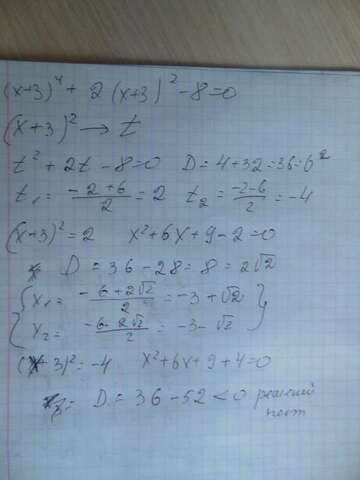 (x+3)⁴ + 2(x+3)² - 8 = 0
(x+3)² → t
t² + 2t - 8 = 0 D = 4 + 32 = 36 = 6²
t₁ = (-2+6)/2 = 2 t₂ = (-2-6)/2 = -4
(x+3)² = 2 x² + 6x + 9 - 2 = 0
D = 36 - 28 = 8 = 2√2
{ x₁ = (-6+2√2)/2 = -3 + √2 }
{ x₂ = (-6-2√2)/2 = -3 - √2 }
(x+3)² = -4 x² + 6x + 9 + 4 = 0
D = 36 - 52 < 0